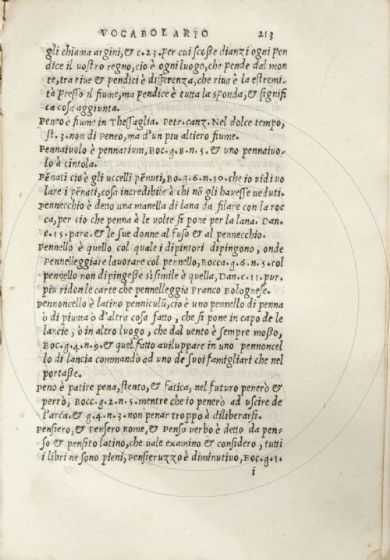 VOCABOLARIO 213
gli chiama argini, & c.23. per cui scosse dianzi ogni pen
dice il vostro regno, cio è ogni luogo, che pende dal mon
te, tra riue & pendici è differenza, che riua è la estremi
tà presso il fiume, ma pendice è tutta la sponda, & signifi
ca cosa aggiunta.
Peneo è fiume in Thessaglia. Petr. canz. Nel dolce tempo,
st.3. non di Peneo, ma d'un piu altiero fiume.
Pennaiuolo è pennarium, Boc.g.8.n.5. & uno pennaiuo-
lo è cintola.
Pēnati cio è gli uccelli pēnuti, Bo.g.6.n.10. che io vidi vo
lare i pēnati, cosa incredibile à chi nō gli hauesse ueduti.
Pennecchio è detto una manella di lana da filare con la roc
ca, per cio che penna è le uolte si pone per la lana. Dan.
c.15. para. & le sue donne al fuso & al pennecchio.
Pennello è quello col quale i dipintori dipingono, onde
Pennelleggiare lauorare col pennello, Bocca.g.6.n.5. col
pennello non dipingesse si simile è quella, Dan.c.11. pur.
piu ridon le carte che pennelleggia Franco Bolognese.
Pennoncello è latino penniculū, cio è uno pennello di penna
ò di piuma ò d'altra cosa fatto, che si pone in capo de le
lancie, ò in altro luogo, che dal uento è sempre mosso,
Bocc.g.4.n.9. & quel fatto auiluppare in uno pennoncel
lo di lancia commandò ad uno de suoi famigliari che nel
portasse.
Peno è patire pena, stento, & fatica, nel futuro penerò &
perrò, Bocc.g.2.n.5. mentre che io penerò ad uscire de
l'arca. & g.4.n.3. non penar troppo à diliberarsi.
Pensiero, & Pensero nome, & Penso verbo è detto da pen-
so & pensito latino, che uale examino & considero, tutti
i libri ne sono pieni, Pensieruzzo è diminutiuo, Boc.g.1.
i